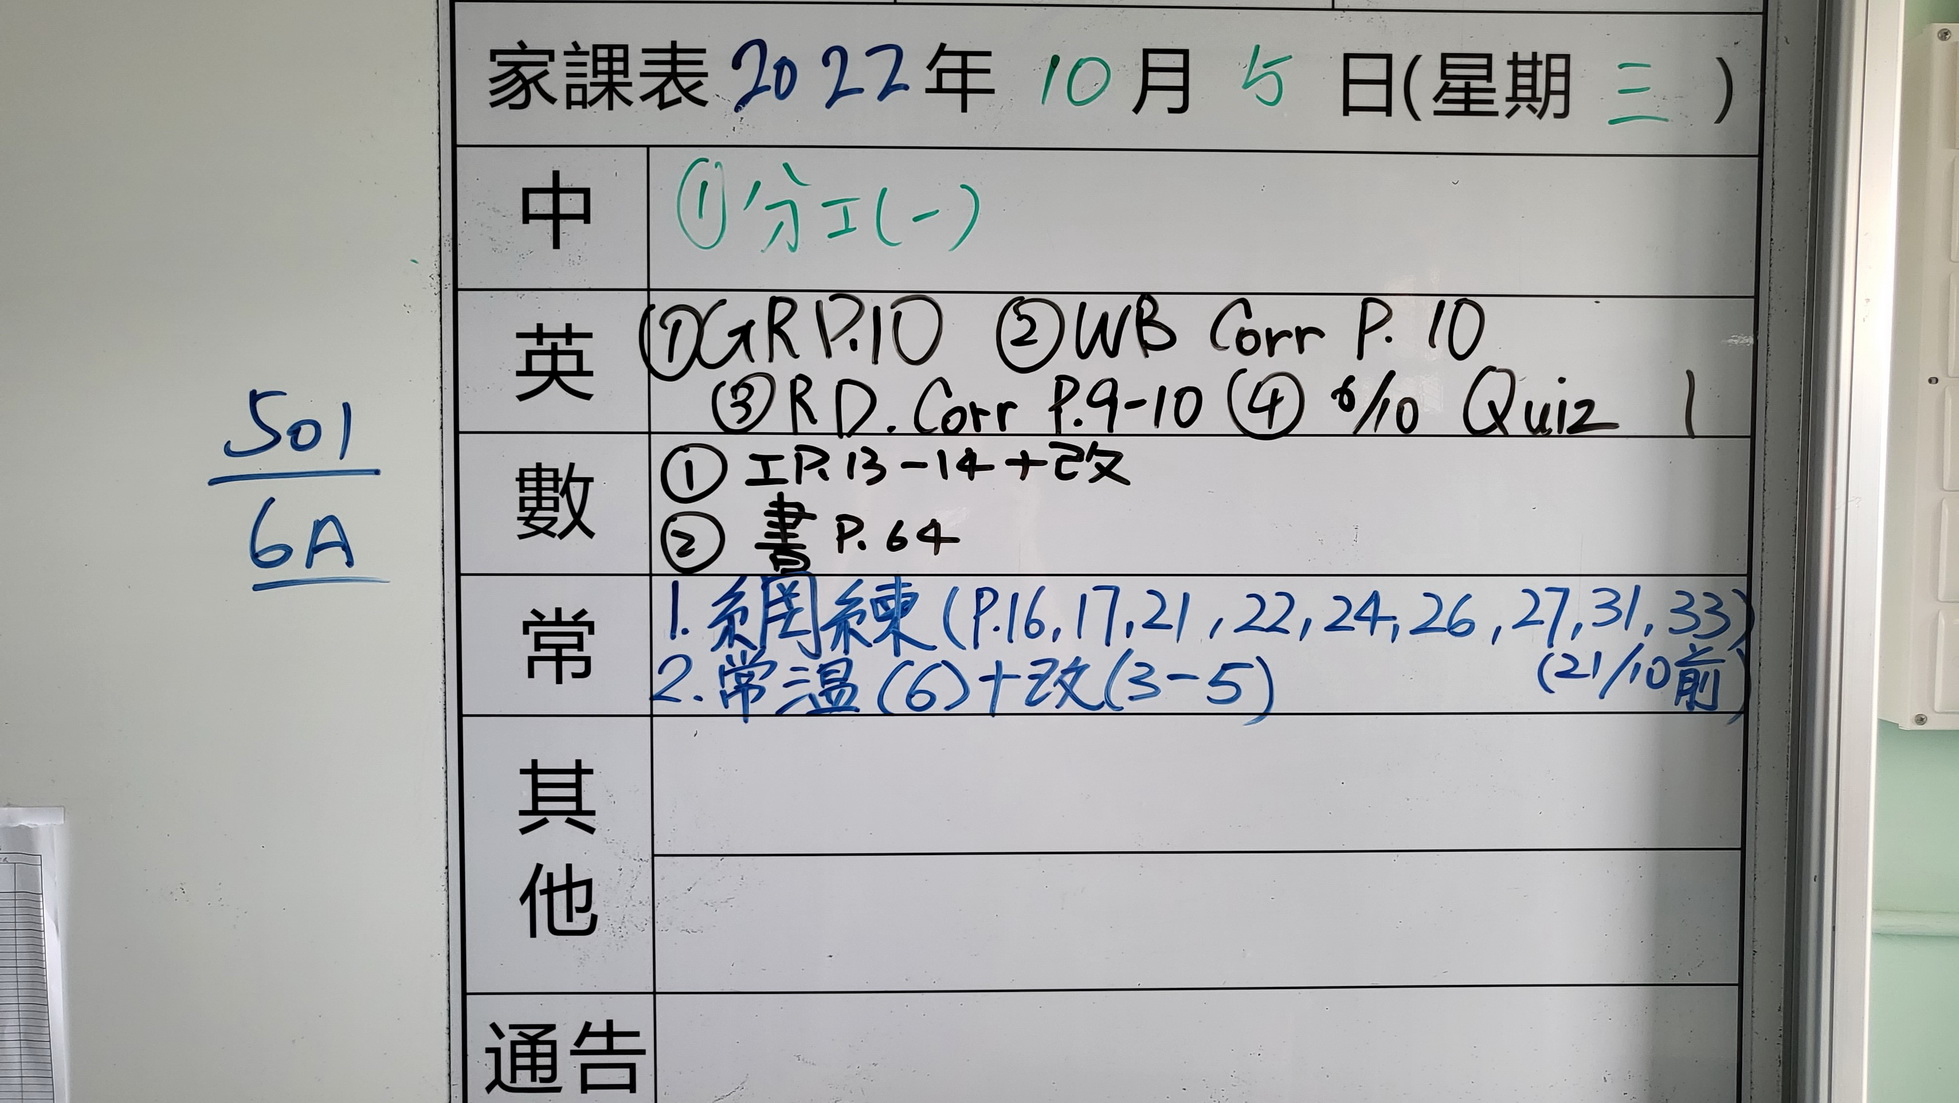 家課表2022年 10月 5 日(星期 三 )
中 ①分工(一)
英 ①GR P.10 ②WB Corr P. 10
③RD. Corr P.9-10 ④ 6/10 Quiz 1
數 ① 工P.13-14+改
② 書 P.64
常 1. 網練(P.16,17,21,22,24,26,27,31,33)
2. 常溫(6)+改(3-5) (21/10前)
其他
通告
501
6A